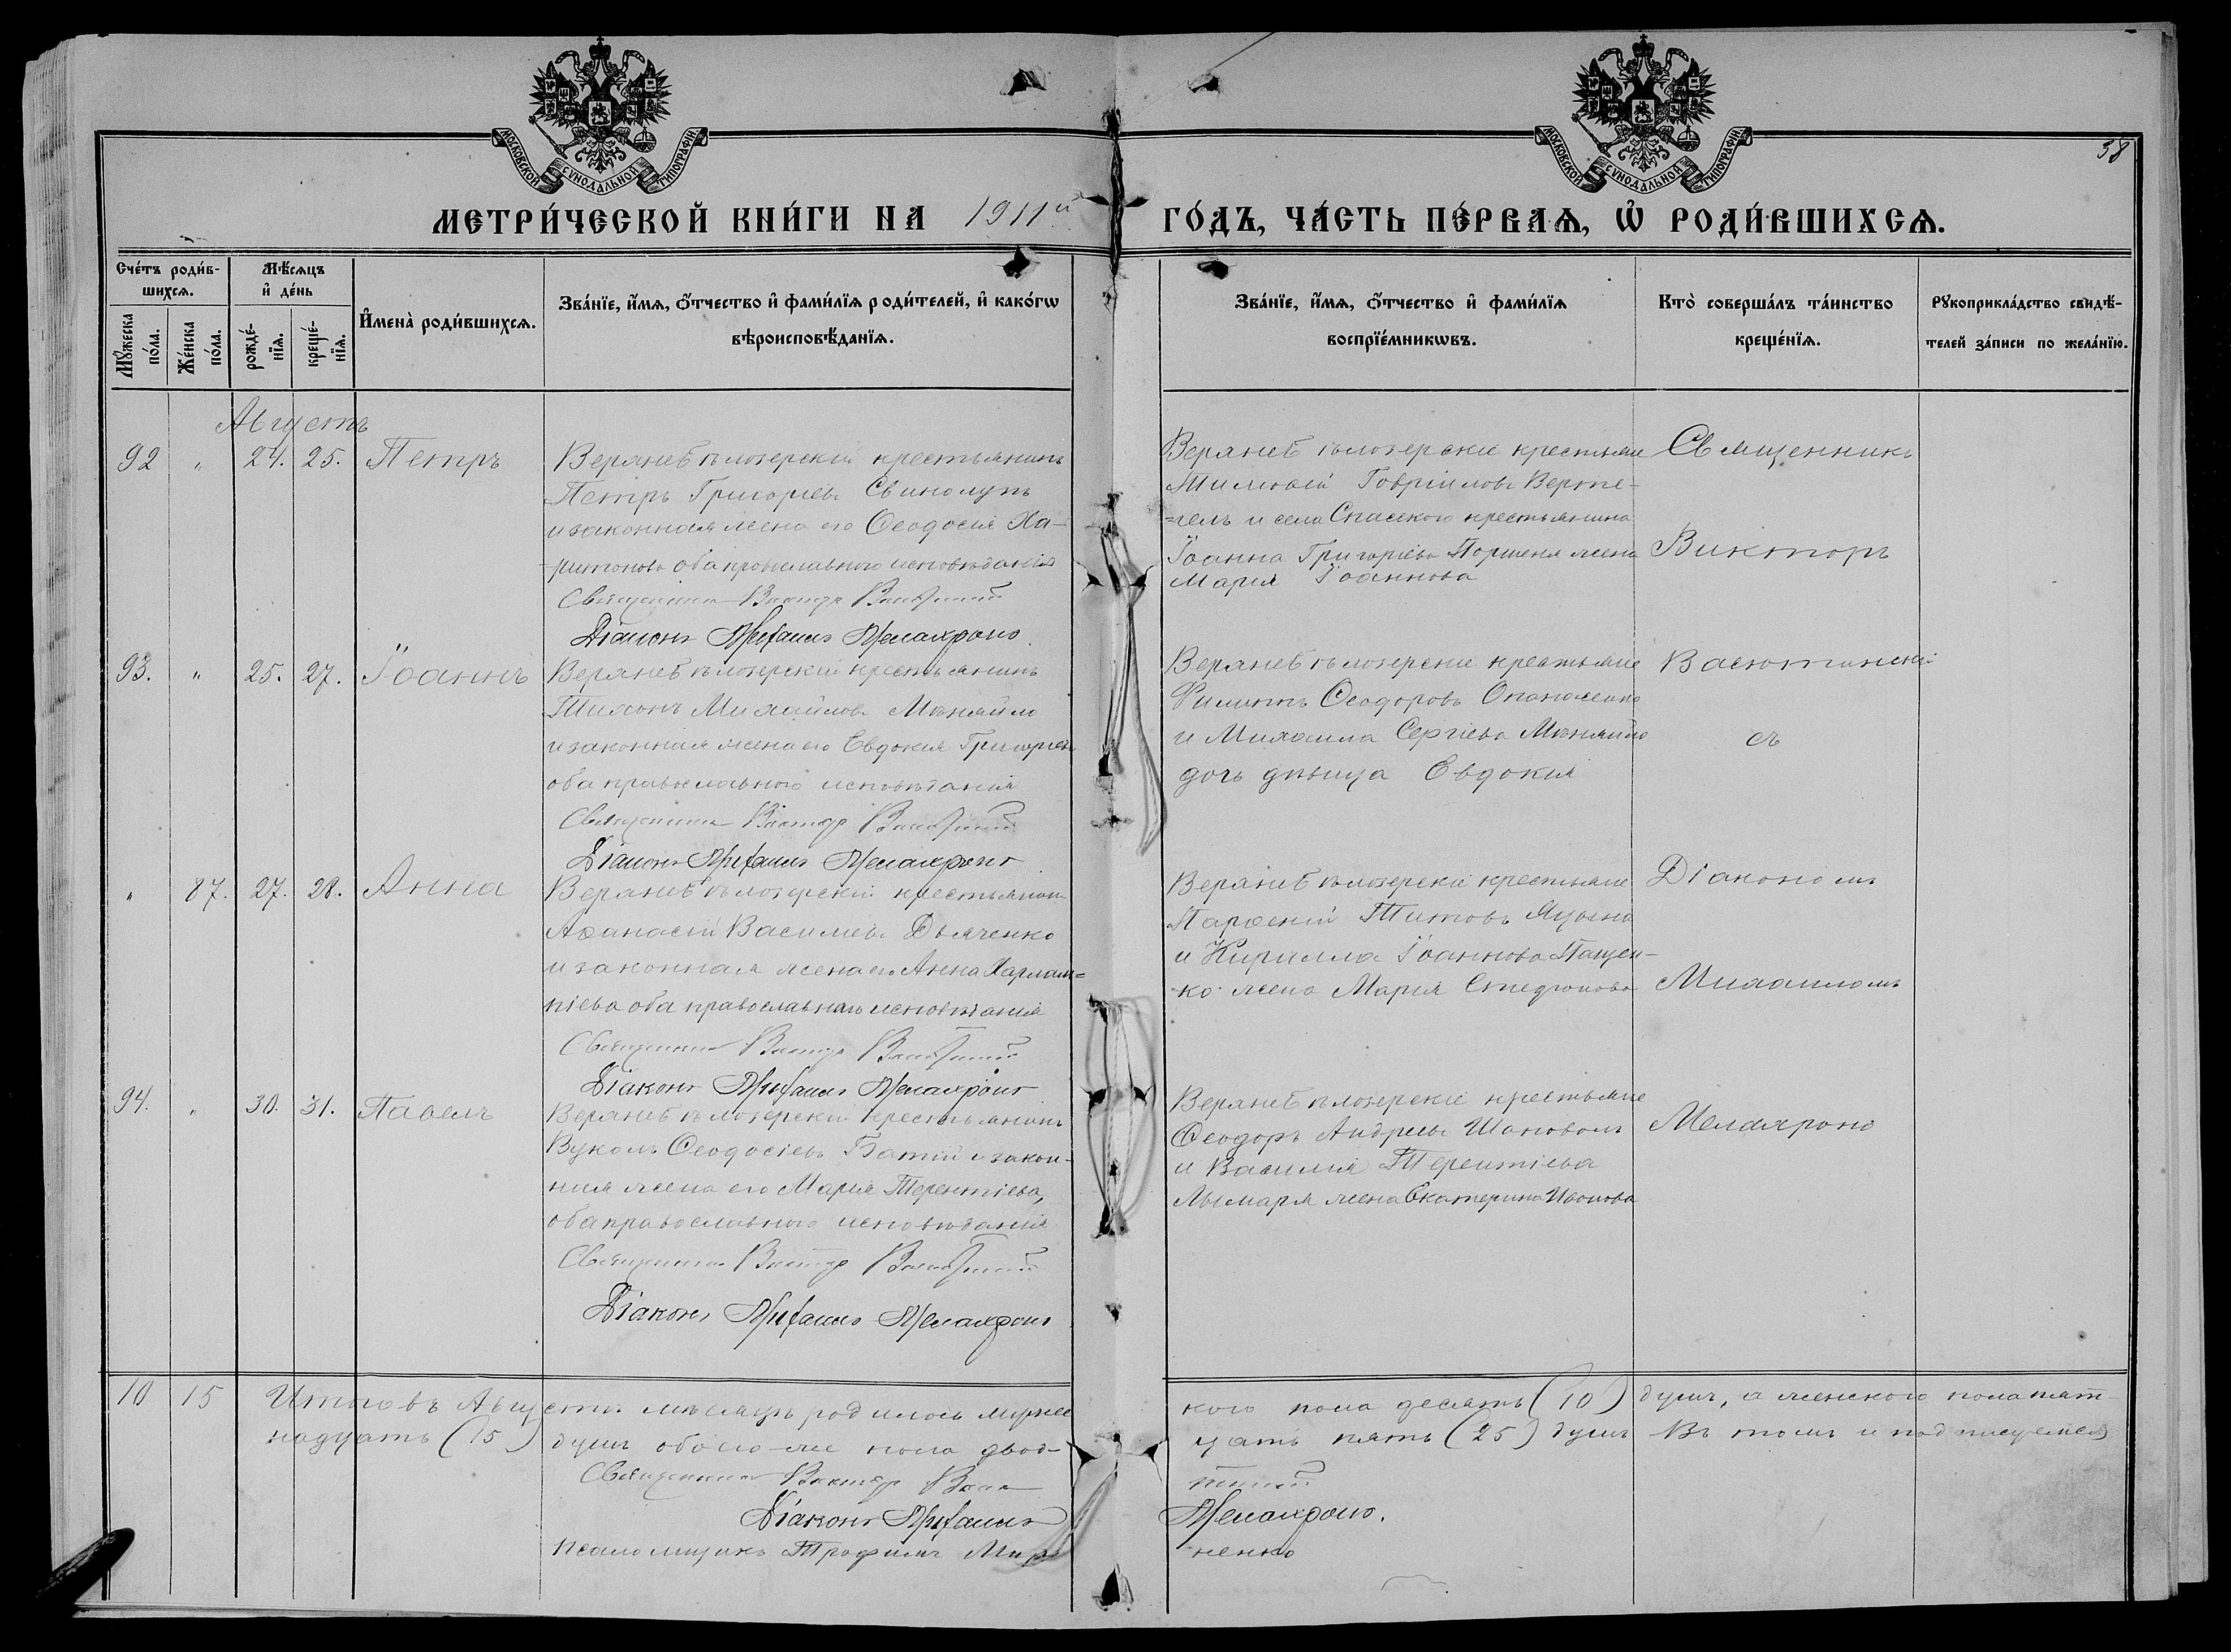 МОСКОВСКОЙ СѴНОДАЛЬНОЙ ТИПОГРАФІИ
МОСКОВСКОЙ СѴНОДАЛЬНОЙ ТИПОГРАФІИ
38
МЕТРИ́ЧЕСКОЙ КНИ́ГИ НА 1911й ГО́ДЪ, ЧА́СТЬ ПЕ́РВАѦ, Ѽ РОДИ́ВШИХСѦ.
Сче́тъ роди́в-
шихсѧ.
Мꙋ́жеска по́ла.
Же́нска по́ла.
Мѣ́сѧцъ
и҆ де́нь
рожде́-
нїѧ.
креще́-
нїѧ.
И҆мена̀ роди́вшихсѧ.
Зва́нїе, и҆́мѧ, ѻ҆́тчество и҆ фами́лїѧ роди́телей, и҆ како́гѡ
вѣроисповѣ́данїѧ.
Зва́нїе, и҆́мѧ, ѻ҆́тчество и҆ фами́лїѧ
воспрїе́мникѡвъ.
Кто̀ соверша́лъ та́инство
креще́нїѧ.
Рꙋкоприкла́дство свидѣ́-
телей за́писи по жела́нїю.
Августъ
92 " 24. 25. Петръ
Верхнебѣлозерскій крестьянинъ
Петръ Григоріевъ Свинолупъ
и законная жена его Ѳеодосія Ха-
ритонова оба православнаго исповѣданія
Священникъ Викторъ Васютинскій
Діаконъ Михаилъ Мелахроно
Верхнебѣлозерскіе крестьяне
Тимоѳей Гавріиловъ Верте-
=гелъ и села Спасскаго крестьянина
Іоанна Григоріева Поршеня жена
Марія Іоаннова
Священникъ
Викторъ
93. " 25. 27. Іоаннъ
Верхнебѣлозерскій крестьянинъ
Тихонъ Михайловъ Мѣняйло
и законная жена его Евдокія Григоріева
оба православнаго исповѣданія
Священникъ Викторъ Васютинскій
Діаконъ Михаилъ Мелахроно
Верхнебѣлозерскіе крестьяне
Филиппъ Ѳеодоровъ
и Михаила Сергіева Мѣняйло
дочь дѣвица Евдокія
Васютинскій
съ
" 87. 27. 28. Анна
Верхнебѣлозерскій крестьянинъ
Аѳанасій Василіевъ Дьяченко
и законная жена его Анна Харлам=
піева оба православнаго исповѣданія
Священникъ Викторъ Васютинскій
Діаконъ Михаилъ Мелахроно
Верхнебѣлозерскіе крестьяне
Парѳеній Титовъ
и Кирилла Іоаннова Пащен-
ко жена Марія
Діакономъ
Михаиломъ
94. " 30. 31. Павелъ
Верхнебѣлозерскій крестьянинъ
Вуколъ Ѳеодосіевъ Батій и закон-
ная жена его Марія Терентіева,
оба православнаго исповѣданія
Священникъ Викторъ Васютинскій
Діаконъ Михаилъ Мелахроно
Верхнебѣлозерскіе крестьяне
Ѳеодоръ Андреевъ Шаповалъ
и Василія Терентіева
Лымаря жена Екатерина Иванова
Мелахроно
10 15 Итого въ Августѣ мѣсяцѣ родилось мужес кого пола десять (10) душъ, а женскаго пола пят-
надцать (15) душъ обоего-же пола двад- цать пять (25) душъ Въ томъ и подписуемся
Священникъ Викторъ Васю тинскій
Діаконъ Михаилъ Мелахроно.
Псаломщикъ Трофимъ Миро ненко